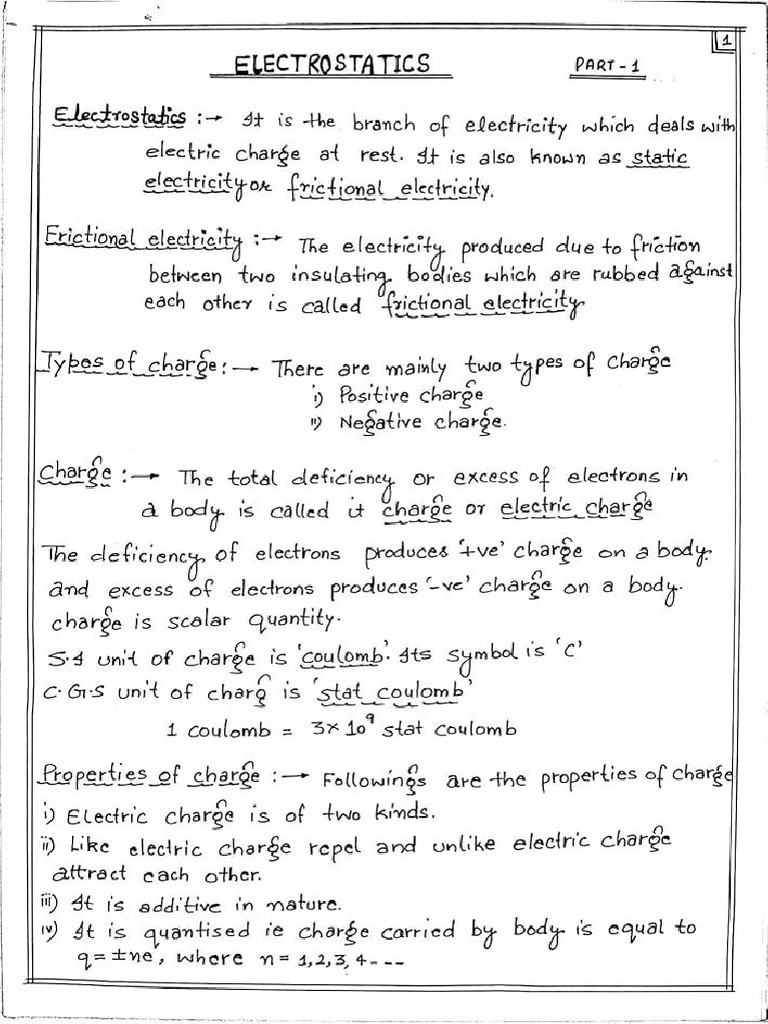 1
ELECTROSTATICS PART-1
Electrostatics :→ It is the branch of electricity which deals with
electric charge at rest. It is also known as static
electricity or frictional electricity.
Frictional electricity :→ The electricity produced due to friction
between two insulating bodies which are rubbed against
each other is called frictional electricity
Types of charge :→ There are mainly two types of Charge
i) Positive charge
ii) Negative charge.
Charge :→ The total deficiency or excess of electrons in
a body is called it charge or electric charge
The deficiency of electrons produces '+ve' charge on a body.
and excess of electrons produces '-ve' charge on a body.
charge is scalar quantity.
S.I unit of charge is 'coulomb'. Its symbol is 'C'
C.G.S unit of charg is 'stat coulomb'
1 coulomb = 3×10⁹ stat coulomb
Properties of charge :→ Followings are the properties of charge
i) Electric charge is of two kinds.
ii) Like electric charge repel and unlike electric charge
attract each other.
iii) It is additive in nature.
iv) It is quantised ie charge carried by body is equal to
q=±ne, where n=1,2,3,4----